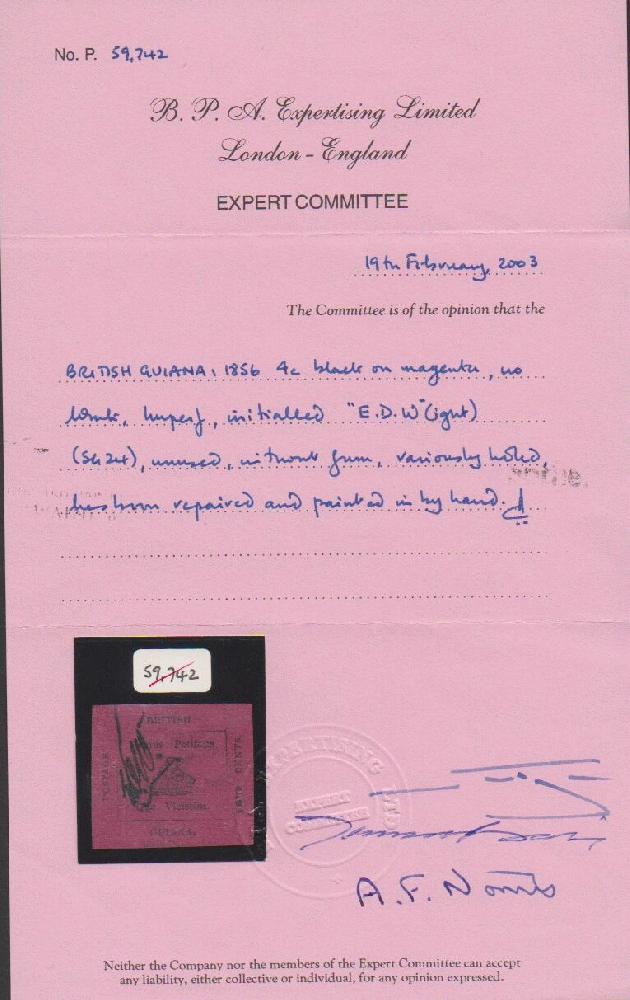 No. P. 59,742
B. P. A. Expertising Limited
London - England
EXPERT COMMITTEE
19th February, 2003
The Committee is of the opinion that the
BRITISH GUIANA: 1856 4c black on magenta, no
wmk, imperf, initialled "E.D.W"(ight)
(SG24), unused, without gum, variously holed,
has been repaired and painted in by hand.
59,742
BRITISH
Petimus
Vicissim.
GUIANA.
POSTAGE
CENTS.
EXPERTISING
EXPERT
COMMITTEE
A. F. Norris
Neither the Company nor the members of the Expert Committee can accept
any liability, either collective or individual, for any opinion expressed.